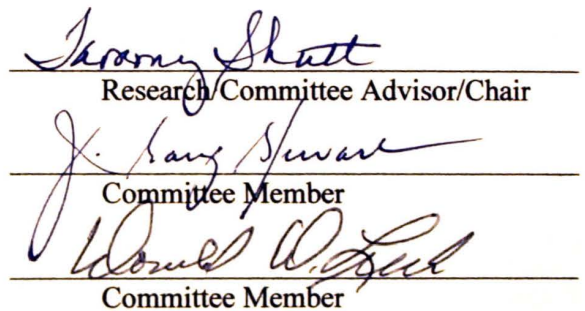 Tammy Shutt
Research/Committee Advisor/Chair
J. Gary
Committee Member
Donald W.
Committee Member